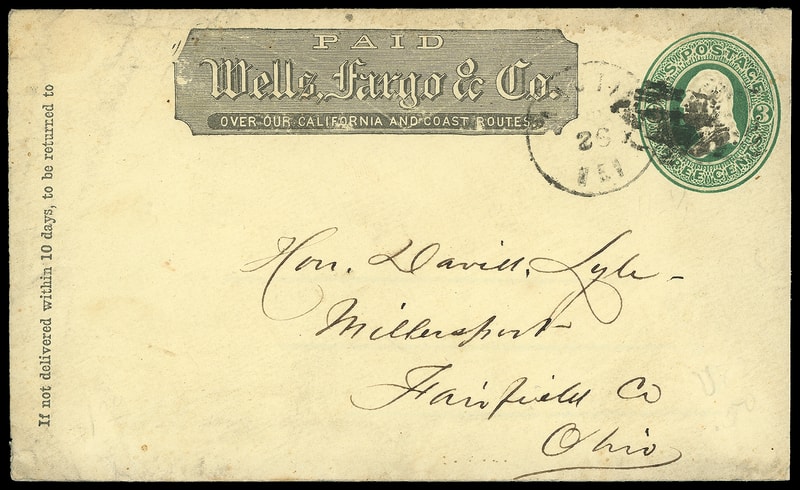 PAID
Wells, Fargo & Co.
OVER OUR CALIFORNIA AND COAST ROUTES.
U.S. POSTAGE
3
THREE CENTS
26
FEB
If not delivered within 10 days, to be returned to
Hon. David Lyle
Millersport
Fairfield Co
Ohio